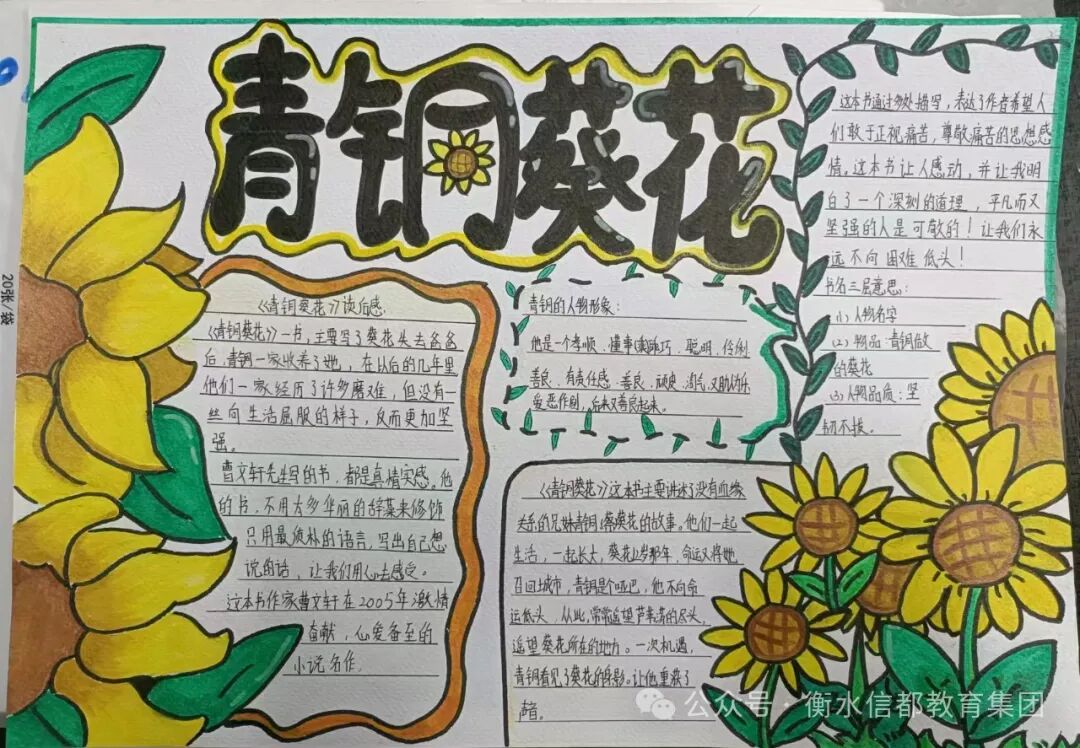 青铜葵花
《青铜葵花》读后感:
《青铜葵花》一书,主要写了葵花失去爸爸
后,青铜一家收养了她,在以后的几年里
他们一家经历了许多磨难,但没有一
丝向生活屈服的样子,反而更加坚
强。
曹文轩先生写的书,都是真情实感,他
的书,不用太多华丽的辞藻来修饰
只用最质朴的语言,写出自己想
说的话,让我们用心去感受。
这本书作家曹文轩在2005年激情
奋献,心爱备至的
小说名作。
青铜的人物形象:
他是一个孝顺、懂事、乖巧、聪明、伶俐
善良、有责任感、善良、顽皮、淘气、又助人为乐
爱恶作剧,后来又善良起来。
这本书通过多处描写,表达了作者希望人
们敢于正视痛苦,尊敬痛苦的思想感
情。这本书让人感动,并让我明
白了一个深刻的道理,平凡而又
坚强的人是可敬的!让我们永
远不向困难低头!
书名三层意思:
(1)人物名字
(2)物品:青铜做
的葵花
(3)人物品质:坚
韧不拔。
《青铜葵花》这本书主要讲述了没有血缘
关系的兄妹青铜和葵花的故事。他们一起
生活,一起长大,葵花12岁那年,命运又将她
召回城市,青铜是个哑巴,他不向命
运低头,从此,常常遥望芦苇荡的尽头,
遥望葵花所在的地方。一次机遇,
青铜看见了葵花的身影。让他重获了
声音。
20张/袋
公众号·衡水信都教育集团